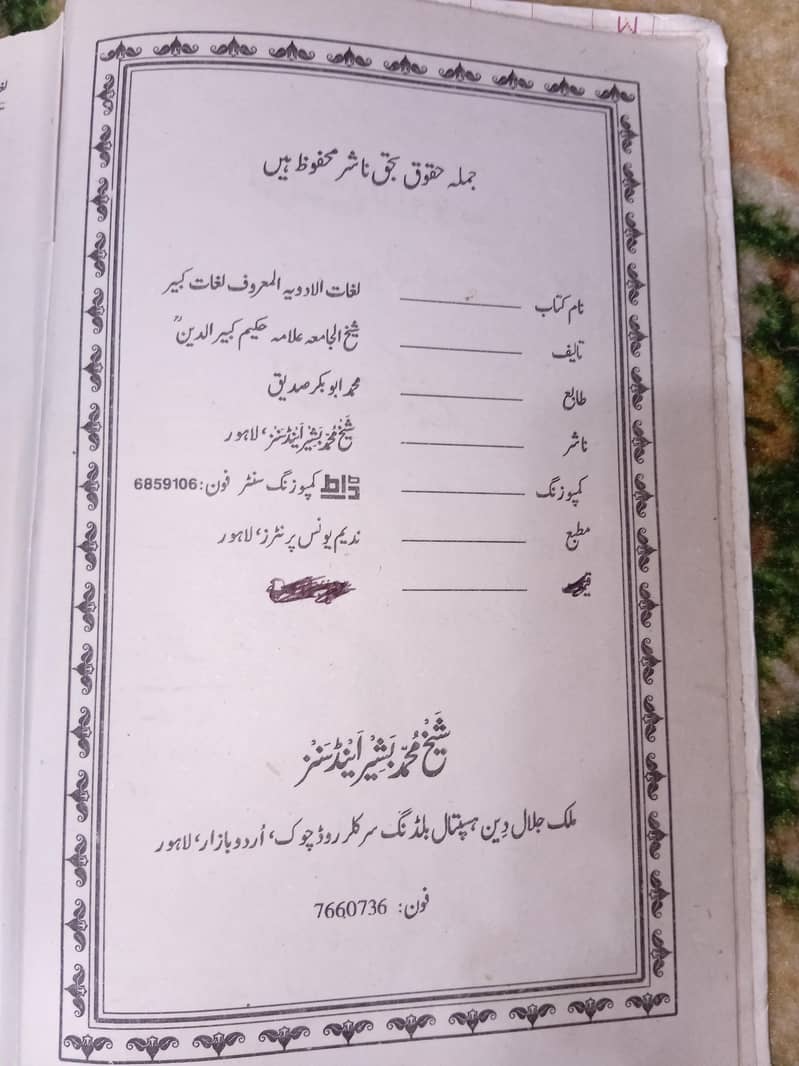 جملہ حقوق بحق ناشر محفوظ ہیں
نام کتاب ــــــــ لغات الادویہ المعروف لغات کبیر
تالیف ــــــــ شیخ الجامعہ علامہ حکیم کبیر الدینؒ
طابع ــــــــ محمد ابوبکر صدیق
ناشر ــــــــ شیخ محمد بشیر اینڈ سنز، لاہور
کمپوزنگ ــــــــ کمپوزنگ سنٹر فون: 6859106
مطبع ــــــــ ندیم یونس پرنٹرز، لاہور
شَیْخ مُحَمَّد بَشِیْر اَیْنْڈ سَنْز
ملک جلال دِین ہسپتال بلڈنگ سرکلر روڈ چوک، اُردو بازار، لاہور
فون: 7660736